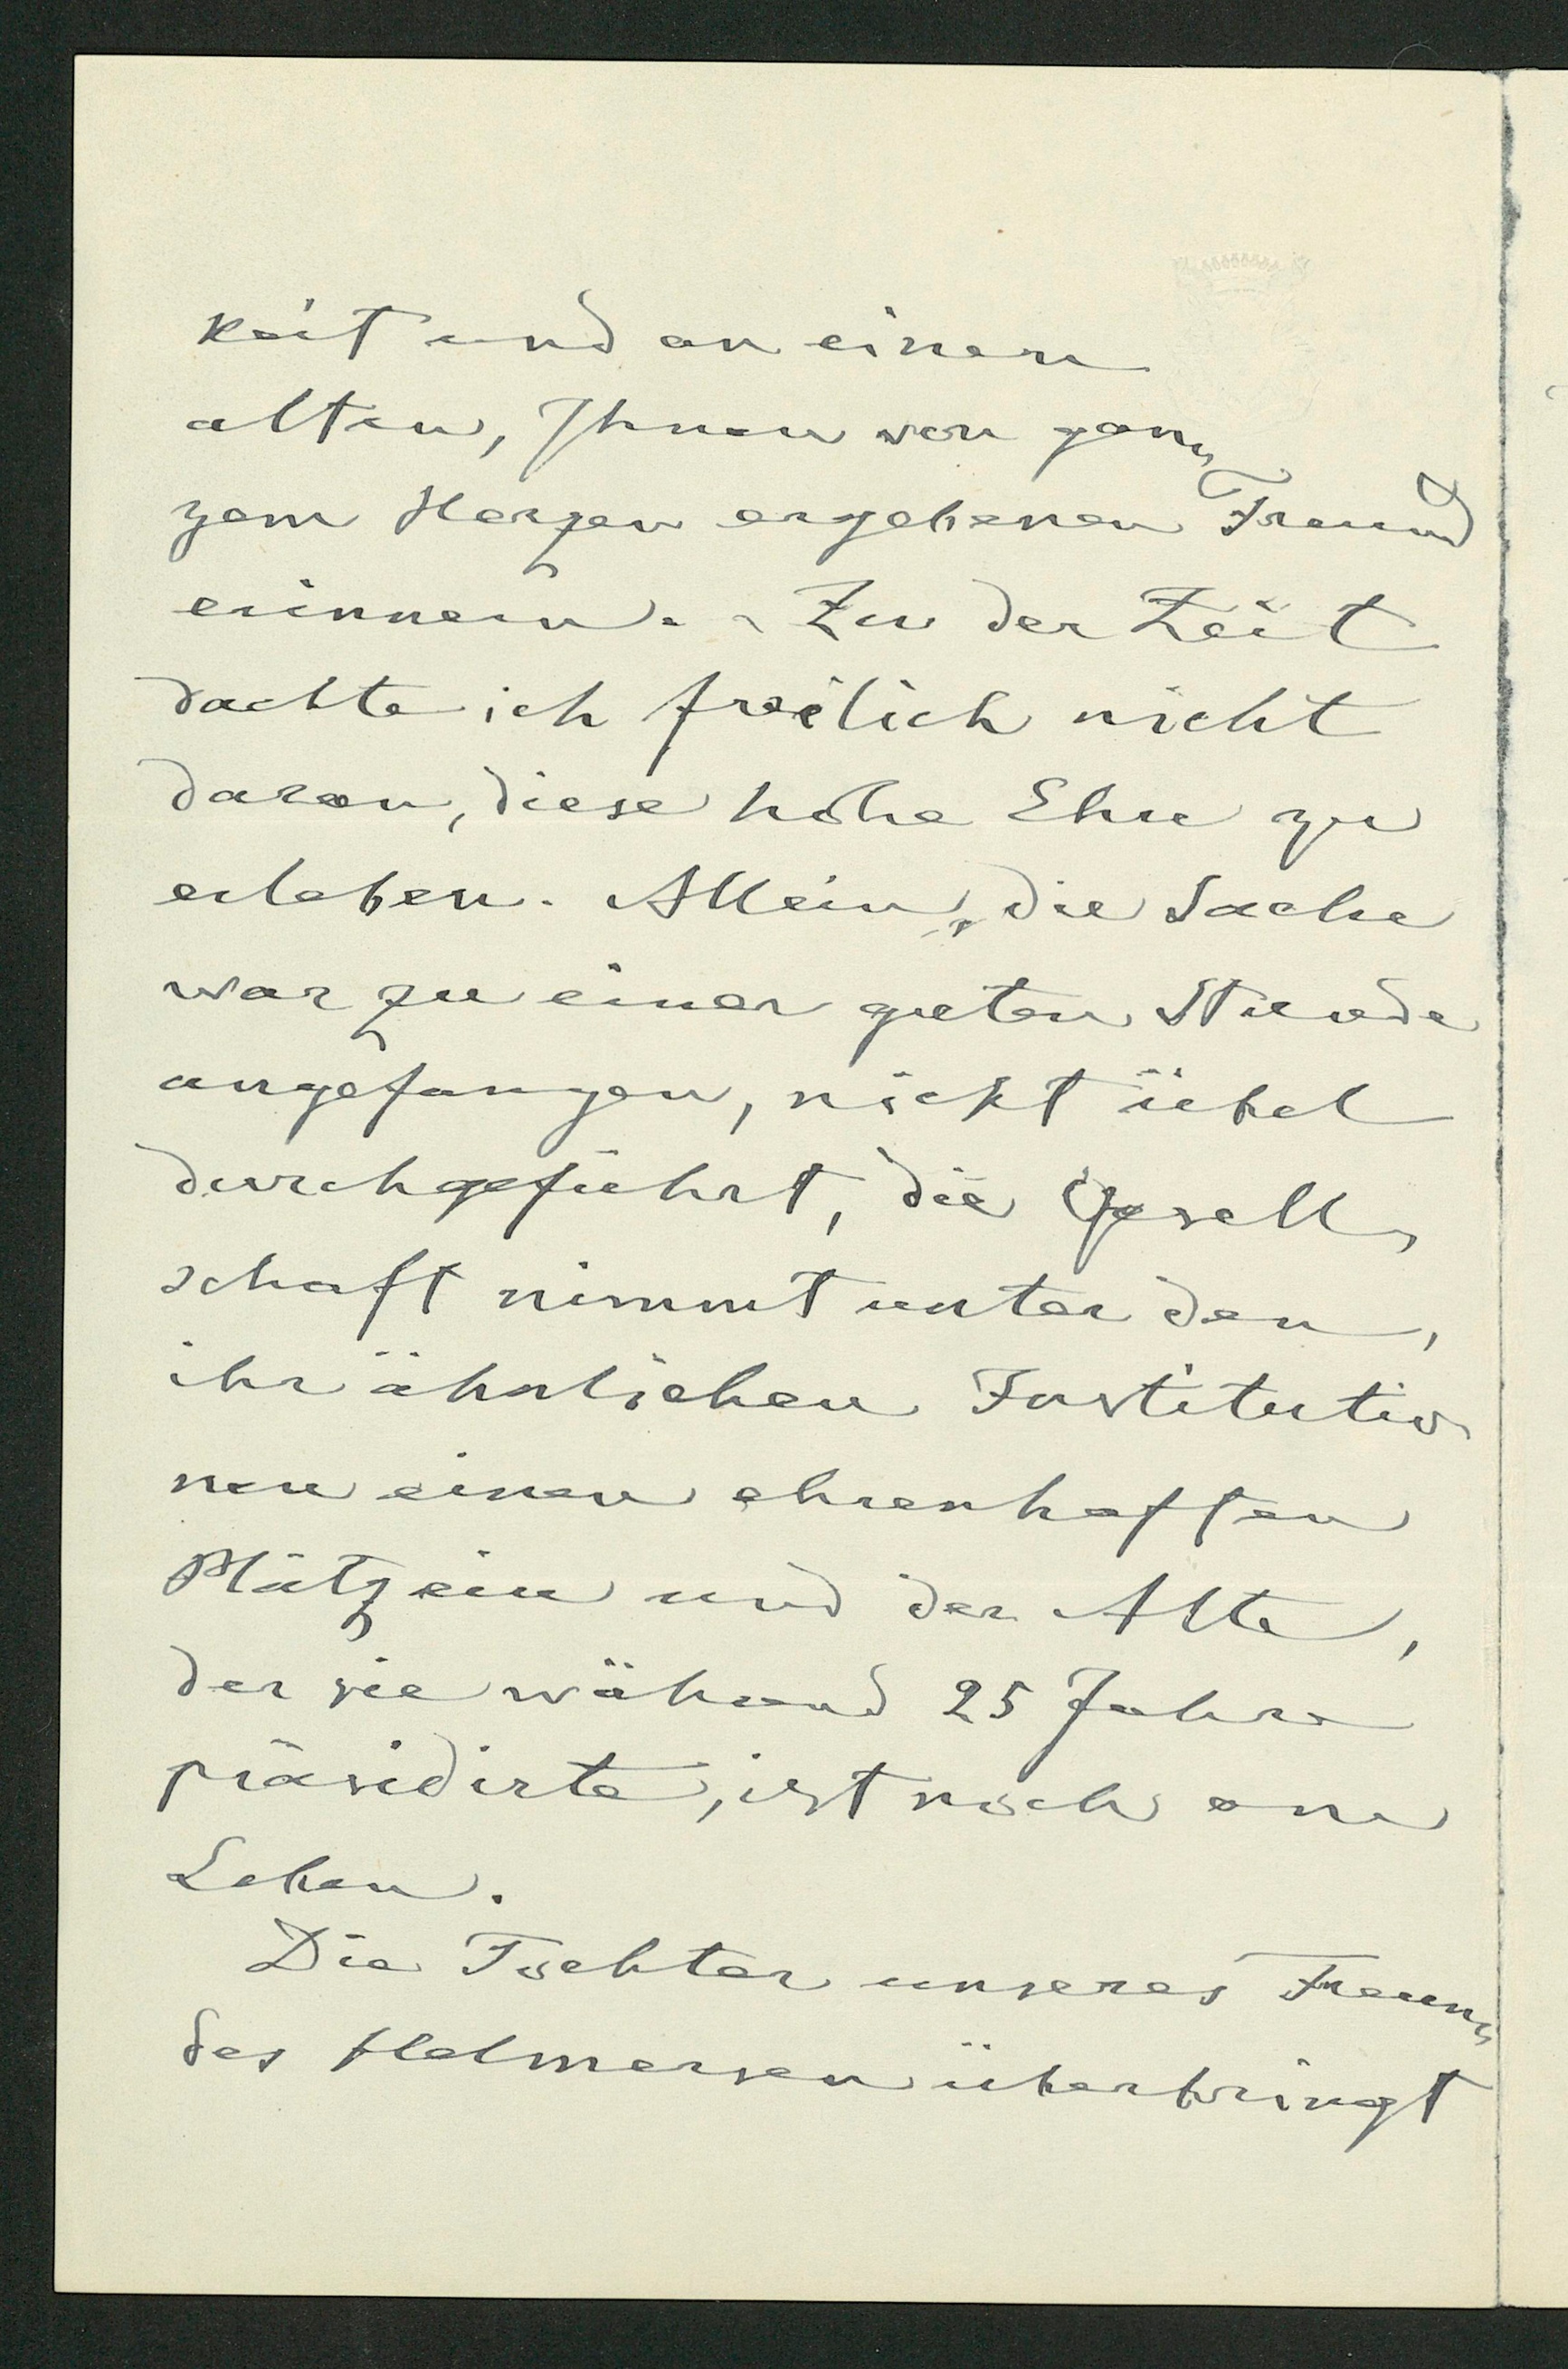 keit und an einen
alten, Ihnen von gan-
zem Herzen ergebenen Freund
erinnern. - Zu der Zeit
dachte ich freilich nicht
daran, diese hohe Ehre zu
erleben. Allein, die Sache
war zu einer guten Stunde
angefangen, nicht übel
durchgeführt, die Gesell-
schaft nimmt unter den,
ihr ähnlichen Institutio-
nen einen ehrenhaften
Platz ein und der Alte,
der sie während 25 Jahre
präsidirte, ist noch am
Leben.
Die Tochter unseres Freun-
des Helmersen überbringt